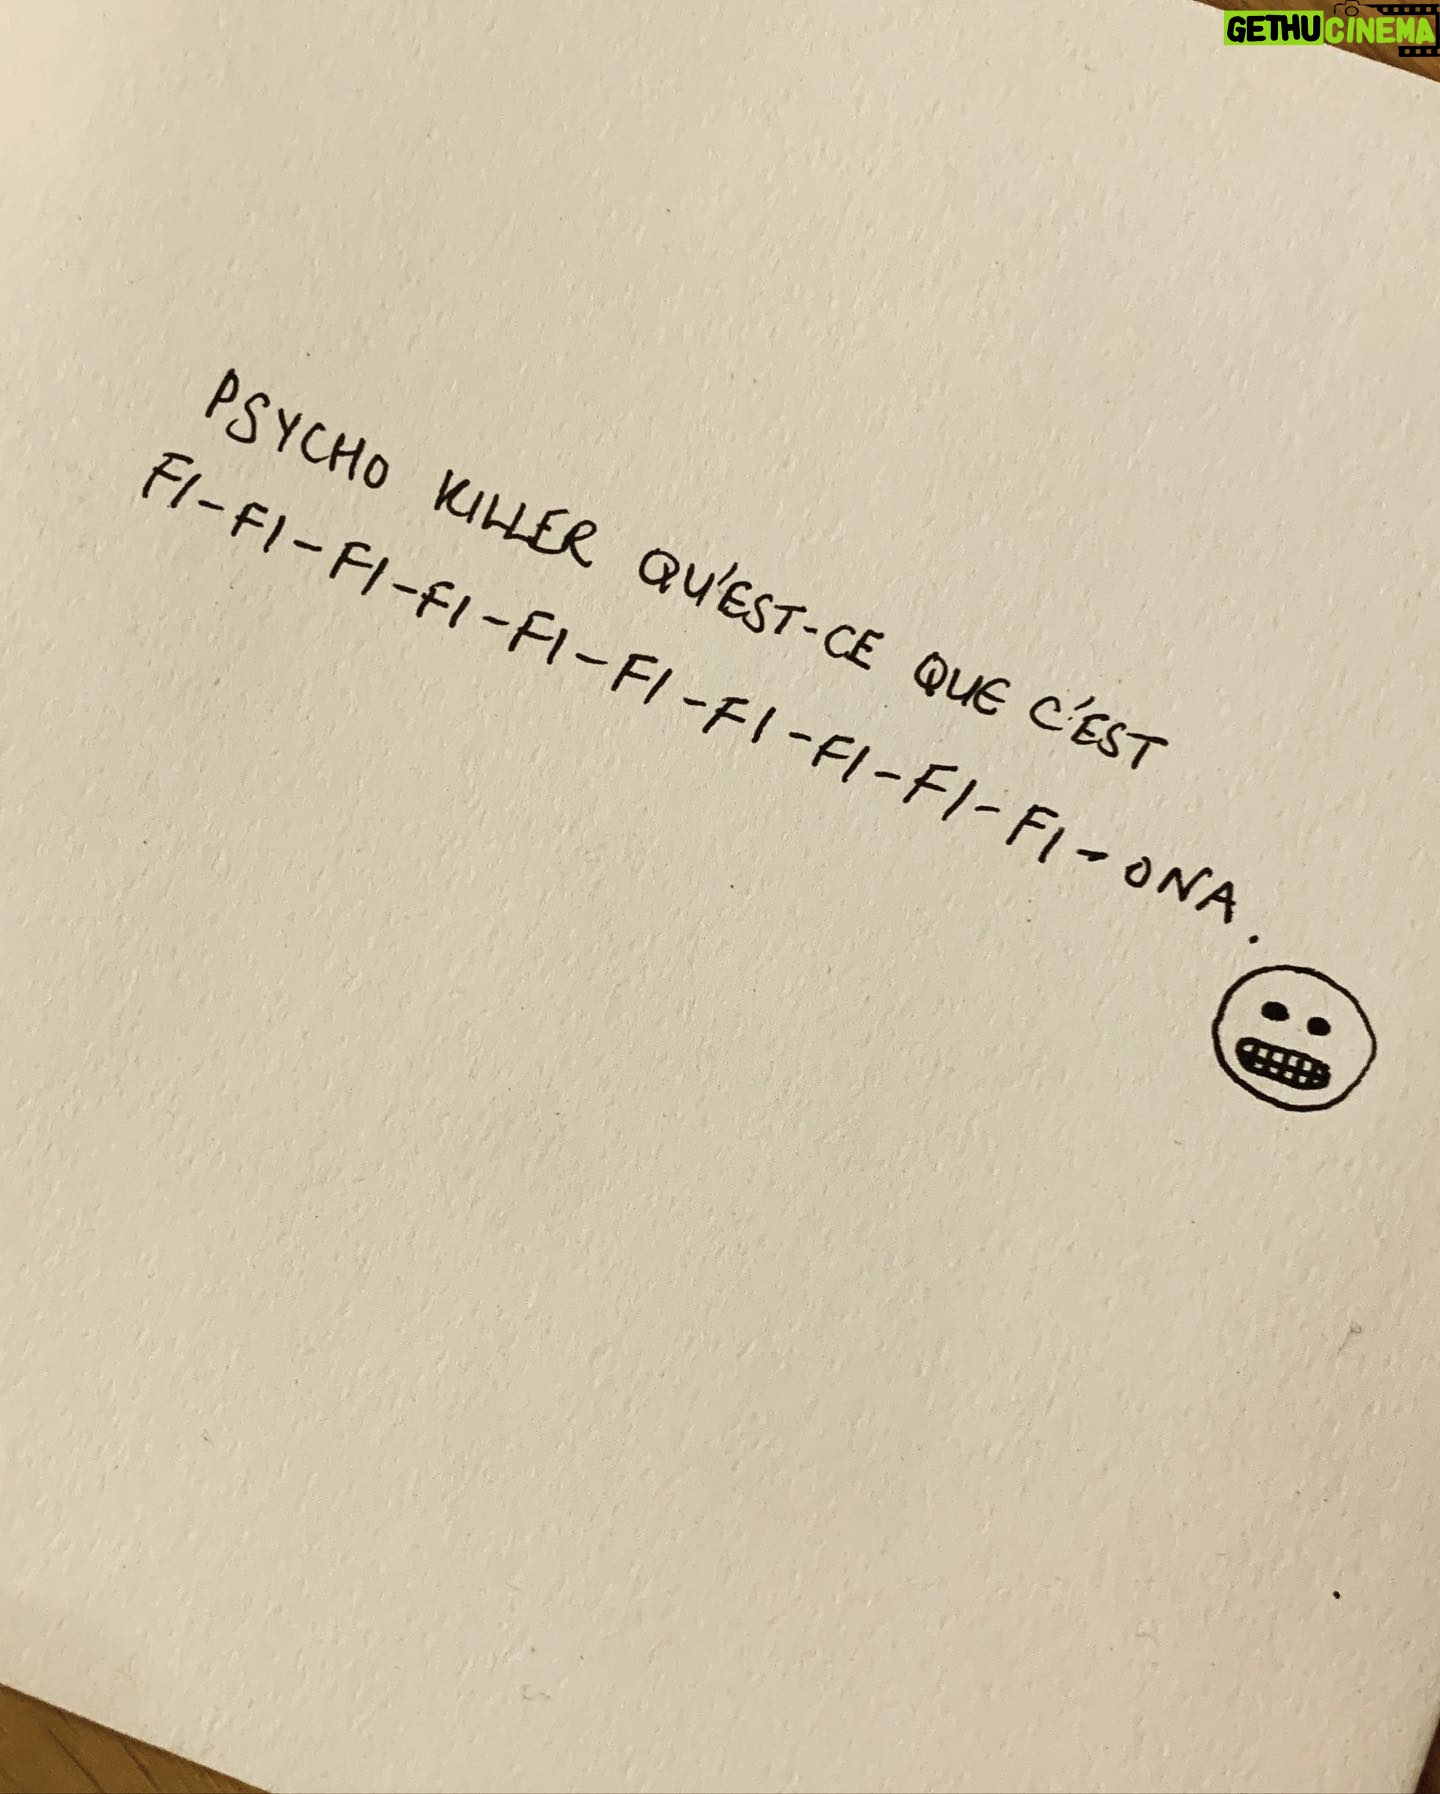 GETHUCINEMA
PSYCHO KILLER QU'EST-CE QUE C'EST
FI-FI-FI-FI-FI-FI-FI-FI-FI-FI-ONA.